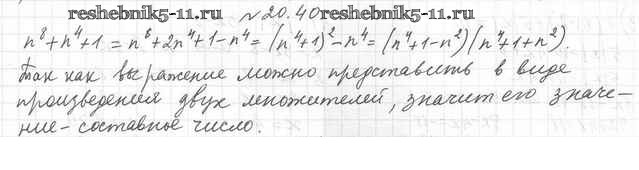 reshebnik5-11.ru №20.40 reshebnik5-11.ru
n⁸+n⁴+1 = n⁸+2n⁴+1-n⁴ = (n⁴+1)²-n⁴ = (n⁴+1-n²)(n⁴+1+n²).
Так как выражение можно представить в виде
произведения двух множителей, значит его значе-
ние - составное число.